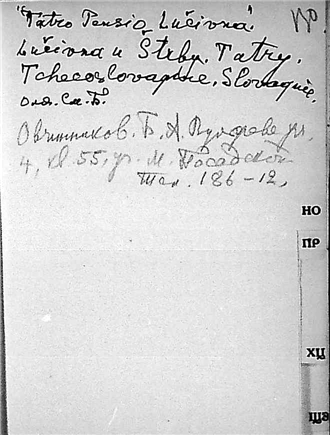 "Tatro Pensio Lučivna"
Lučivna u Štrby. Tatry.
Tchecoslovaquie. Slovaquie.
Овчинников. Б. А.
4, кв. 55, уг. М. Посадской
Тел. 186-12,
НО
ПР
ХЦ
ШЭ